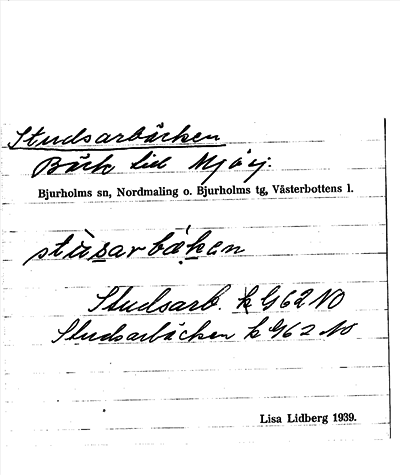 Studsarbäcken
Bäck vid Mjöj.
Bjurholms sn, Nordmaling o. Bjurholms tg, Västerbottens l.
stùsarbä́ken
Studsarb. k G62 NO
Studsarbäcken k G62 NO
Lisa Lidberg 1939.